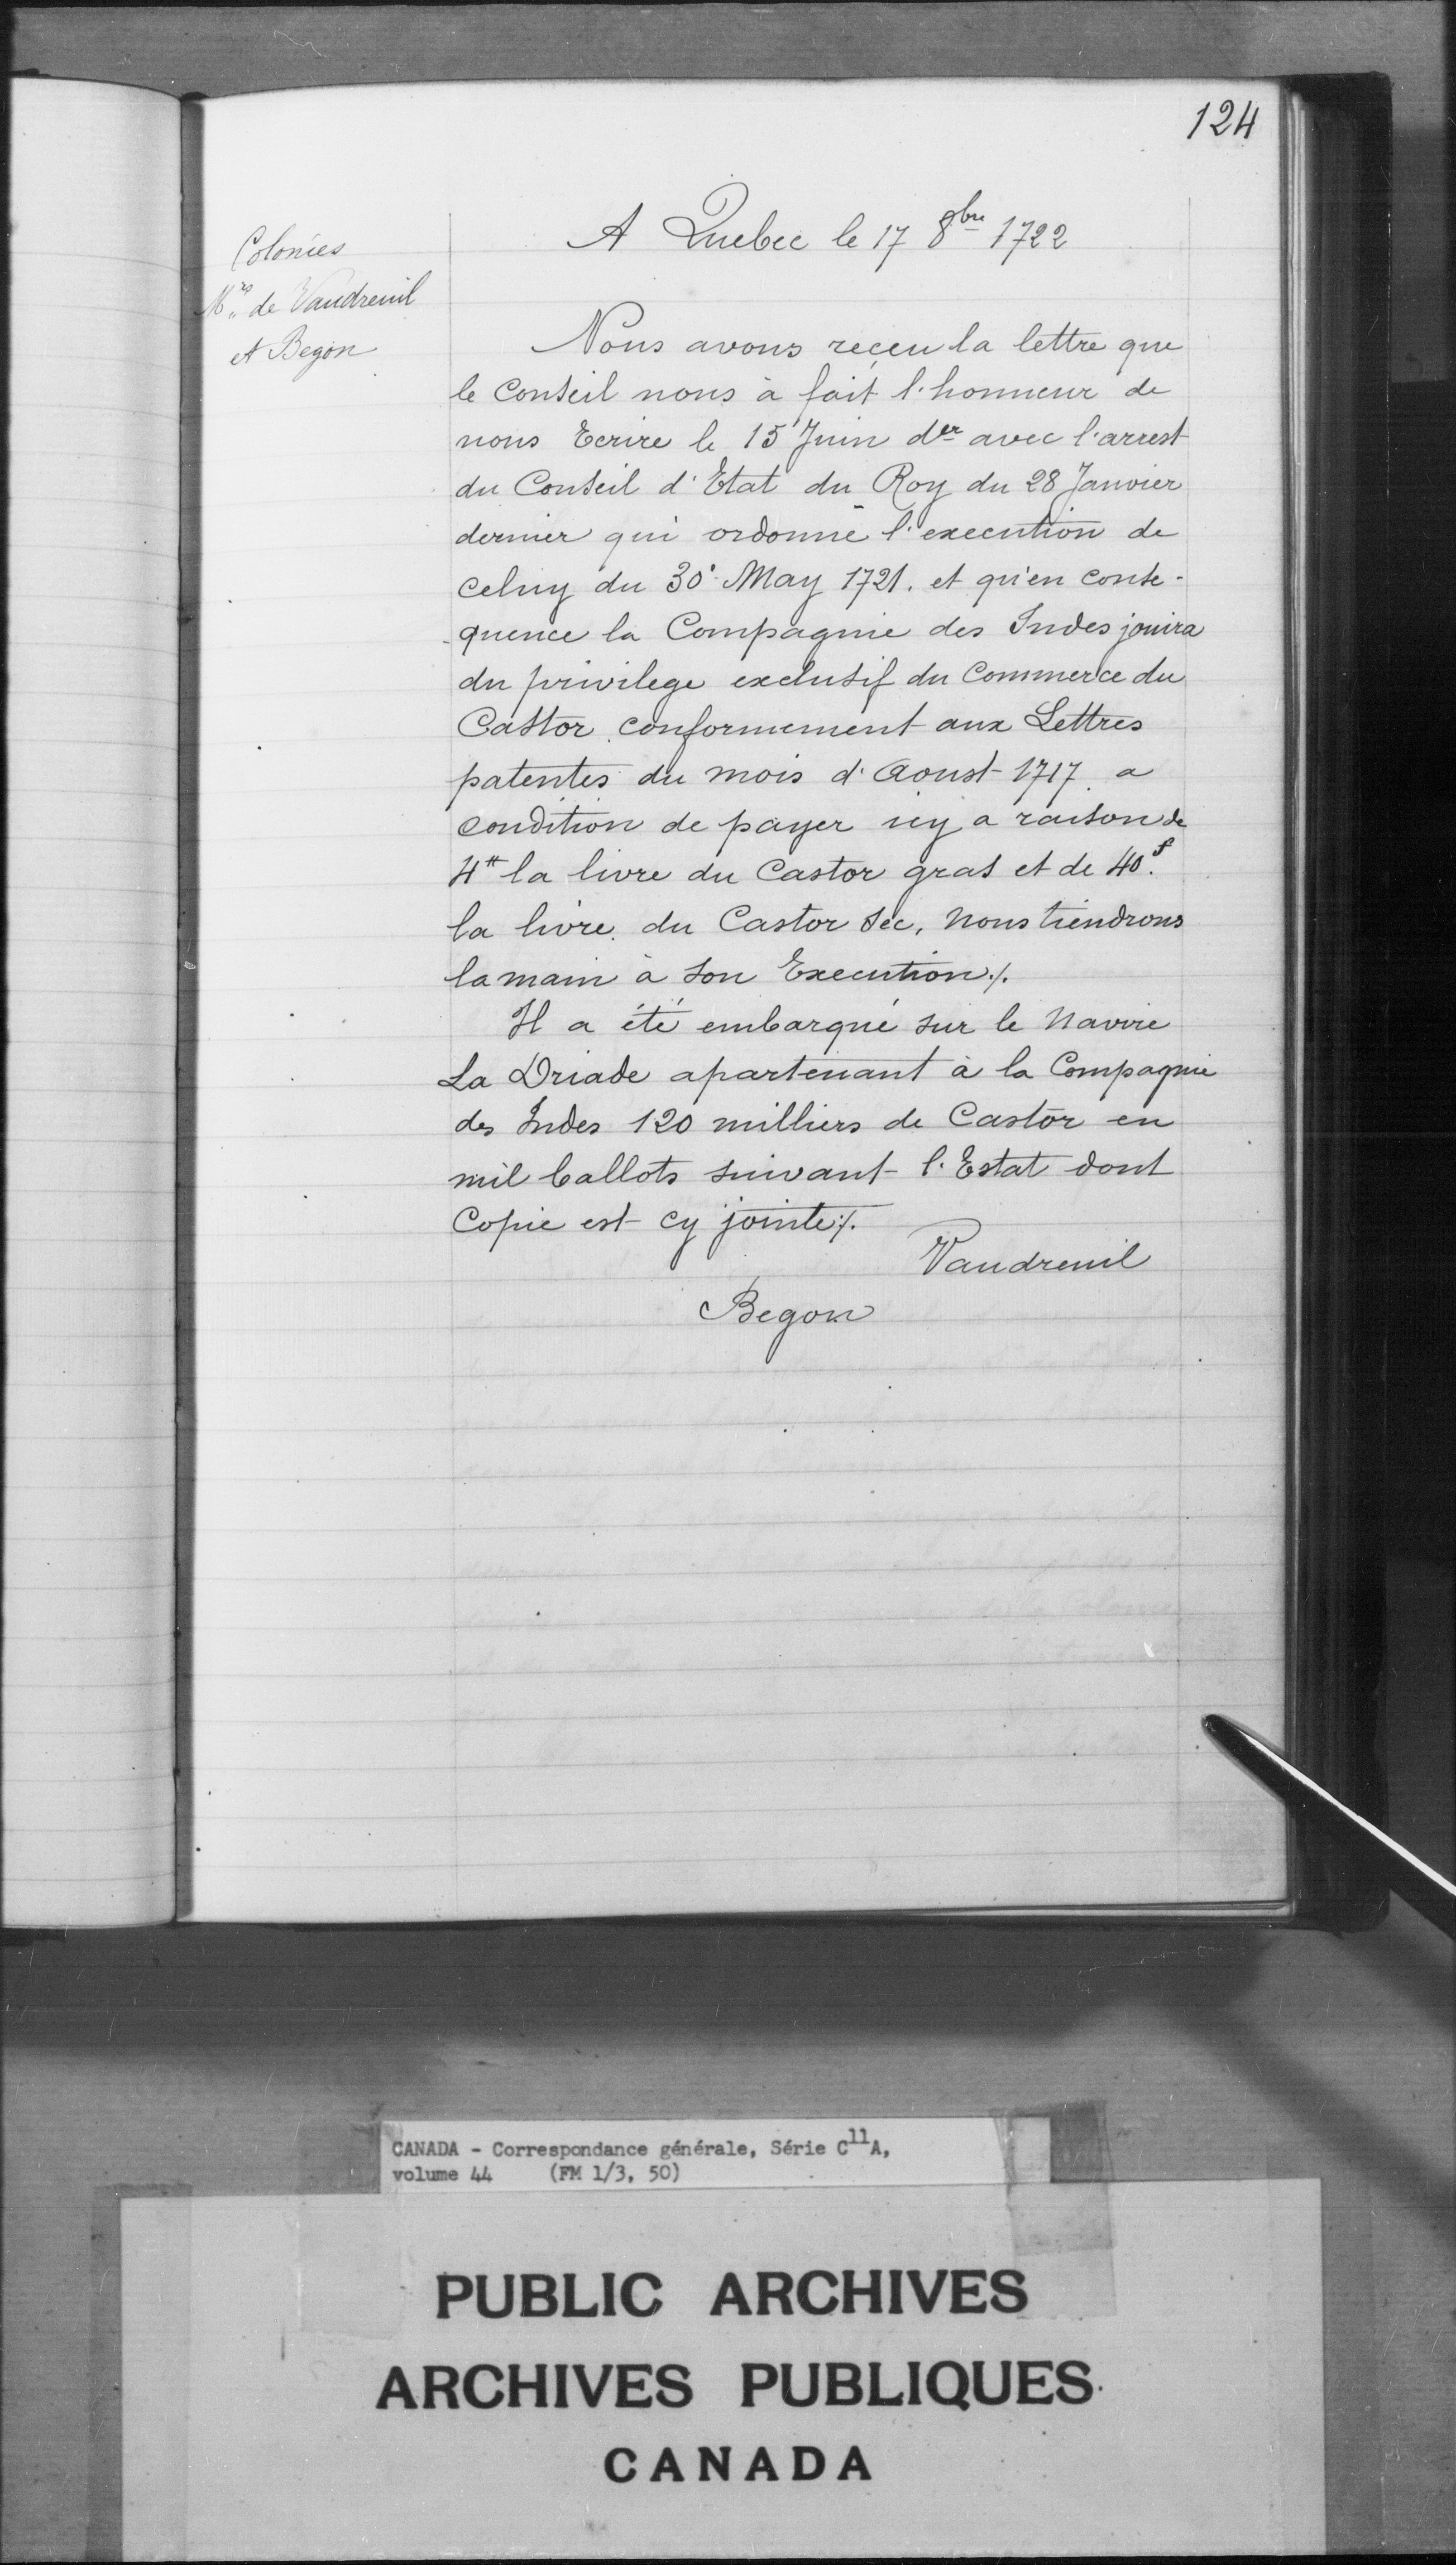 124
A Quebec le 17 8bre 1722
Colonies
Mrs de Vaudreuil
et Begon
Nous avons reçeu la lettre que
le Conseil nous à fait l'honneur de
nous Ecrire le 15 Juin der avec l'arrest
du Conseil d'Etat du Roy du 28 Janvier
dernier qui ordonne l'execution de
celuy du 30e May 1721. et qu'en conse-
-quence la Compagnie des Indes jouira
du privilege exclusif du Commerce du
Castor conformement aux Lettres
patentes du mois d'Aoust 1717. a
condition de payer icy a raison de
4tt la livre du Castor gras et de 40s.
la livre du Castor sec, nous tiendrons
la main à son Execution ./.
Il a été embarqué sur le Navire
La Driade apartenant à la Compagnie
des Indes 120 milliers de Castor en
mil ballots suivant l'Estat dont
Copie est cy jointe ./.
Vaudreuil
Begon
CANADA - Correspondance générale, Série C11A,
volume 44 (FM 1/3, 50)
PUBLIC ARCHIVES
ARCHIVES PUBLIQUES
CANADA